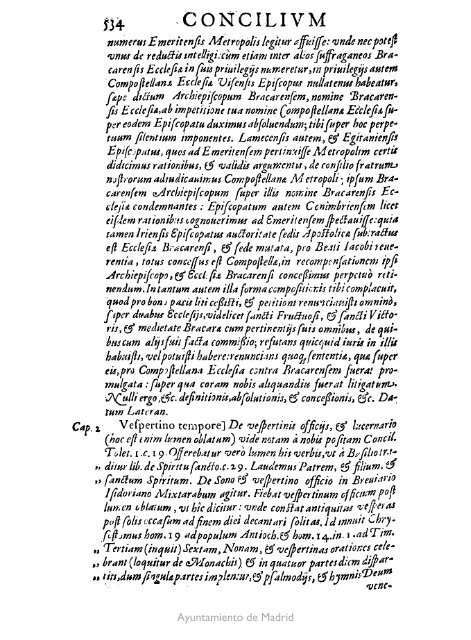 534 CONCILIVM
numerus Emeritensis Metropolis legitur affuisse: vnde nec potest
vnus de reductis intelligi: cùm etiam inter alios suffraganeos Bra-
carensis Ecclesiæ in suis priuilegijs numeretur, in priuilegijs autem
Compostellanæ Ecclesiæ Visensis Episcopus nullatenus habeatur,
sæpe dictum Archiepiscopum Bracarensem, nomine Bracaren-
sis Ecclesiæ, ab impetitione tua nomine Compostellanæ Ecclesiæ su-
per eodem Episcopatu duximus absoluendum; tibi super hoc perpe-
tuum silentium imponentes. Lamecensis autem, & Egitaniensis
Episcopatus, quos ad Emeritensem pertinuisse Metropolim certis
didicimus rationibus, & validis argumentis, de consilio fratrum
nostrorum adiudicauimus Compostellanæ Metropoli; ipsum Bra-
carensem Archiepiscopum super illis nomine Bracarensis Ec-
clesiæ condemnantes: Episcopatum autem Conimbriensem licet
eisdem rationibus cognouerimus ad Emeritensem spectauisse: quia
tamen Iriensis Episcopatus auctoritate sedis Apostolicæ subtractus
est Ecclesiæ Bracarensi, & sede mutata, pro Beati Iacobi reue-
rentia, totus concessus est Compostellæ, in recompensationem ipsi
Archiepiscopo, & Ecclesiæ Bracarensi concessimus perpetuò reti-
nendum. In tantum autem illa forma compositionis tibi complacuit,
quod pro bono pacis liti cessisti, & petitioni renunciauisti omninò,
super duabus Ecclesijs, videlicet sancti Fructuosi, & sancti Victo-
ris, & medietate Bracaræ cum pertinentijs suis omnibus, de qui-
bus cum alijs fuit facta commissio; refutans quicquid iuris in illis
habuisti, vel potuisti habere: renuncians quoq; sententiæ, quæ super
eis, pro Compostellana Ecclesia contra Bracarensem fuerat pro-
mulgata: super qua coram nobis aliquandiu fuerat litigatum.
Nulli ergo, &c. definitionis, absolutionis, & concessionis, &c. Da-
tum Lateran.
Cap. 2 Vespertino tempore] De vespertinis officijs, & lucernario
(hoc est enim lumen oblatum) vide notam à nobis positam Concil.
Tolet. 1. c. 19. Offerebatur verò lumen his verbis, vt à Basilio tra-
ditur lib. de Spiritu sancto. c. 29. Laudemus Patrem, & filium, &
„ sanctum Spiritum. De Sono & vespertino officio in Breuiario
Isidoriano Mixtarabum agitur. Fiebat vespertinum officium post
lumen oblatum, vt hic dicitur: vnde constat antiquitus vesperas
post solis occasum ad finem diei decantari solitas. Id innuit Chry-
sostomus hom. 19 ad populum Antioch. & hom. 14. in. 1. ad Tim.
„ Tertiam (inquit) Sextam, Nonam, & vespertinas orationes cele-
„ brant (loquitur de Monachis) & in quatuor partes diem dispar-
„ titi, dum singulæ partes implentur, & psalmodijs, & hymnis Deum
vene-
Ayuntamiento de Madrid